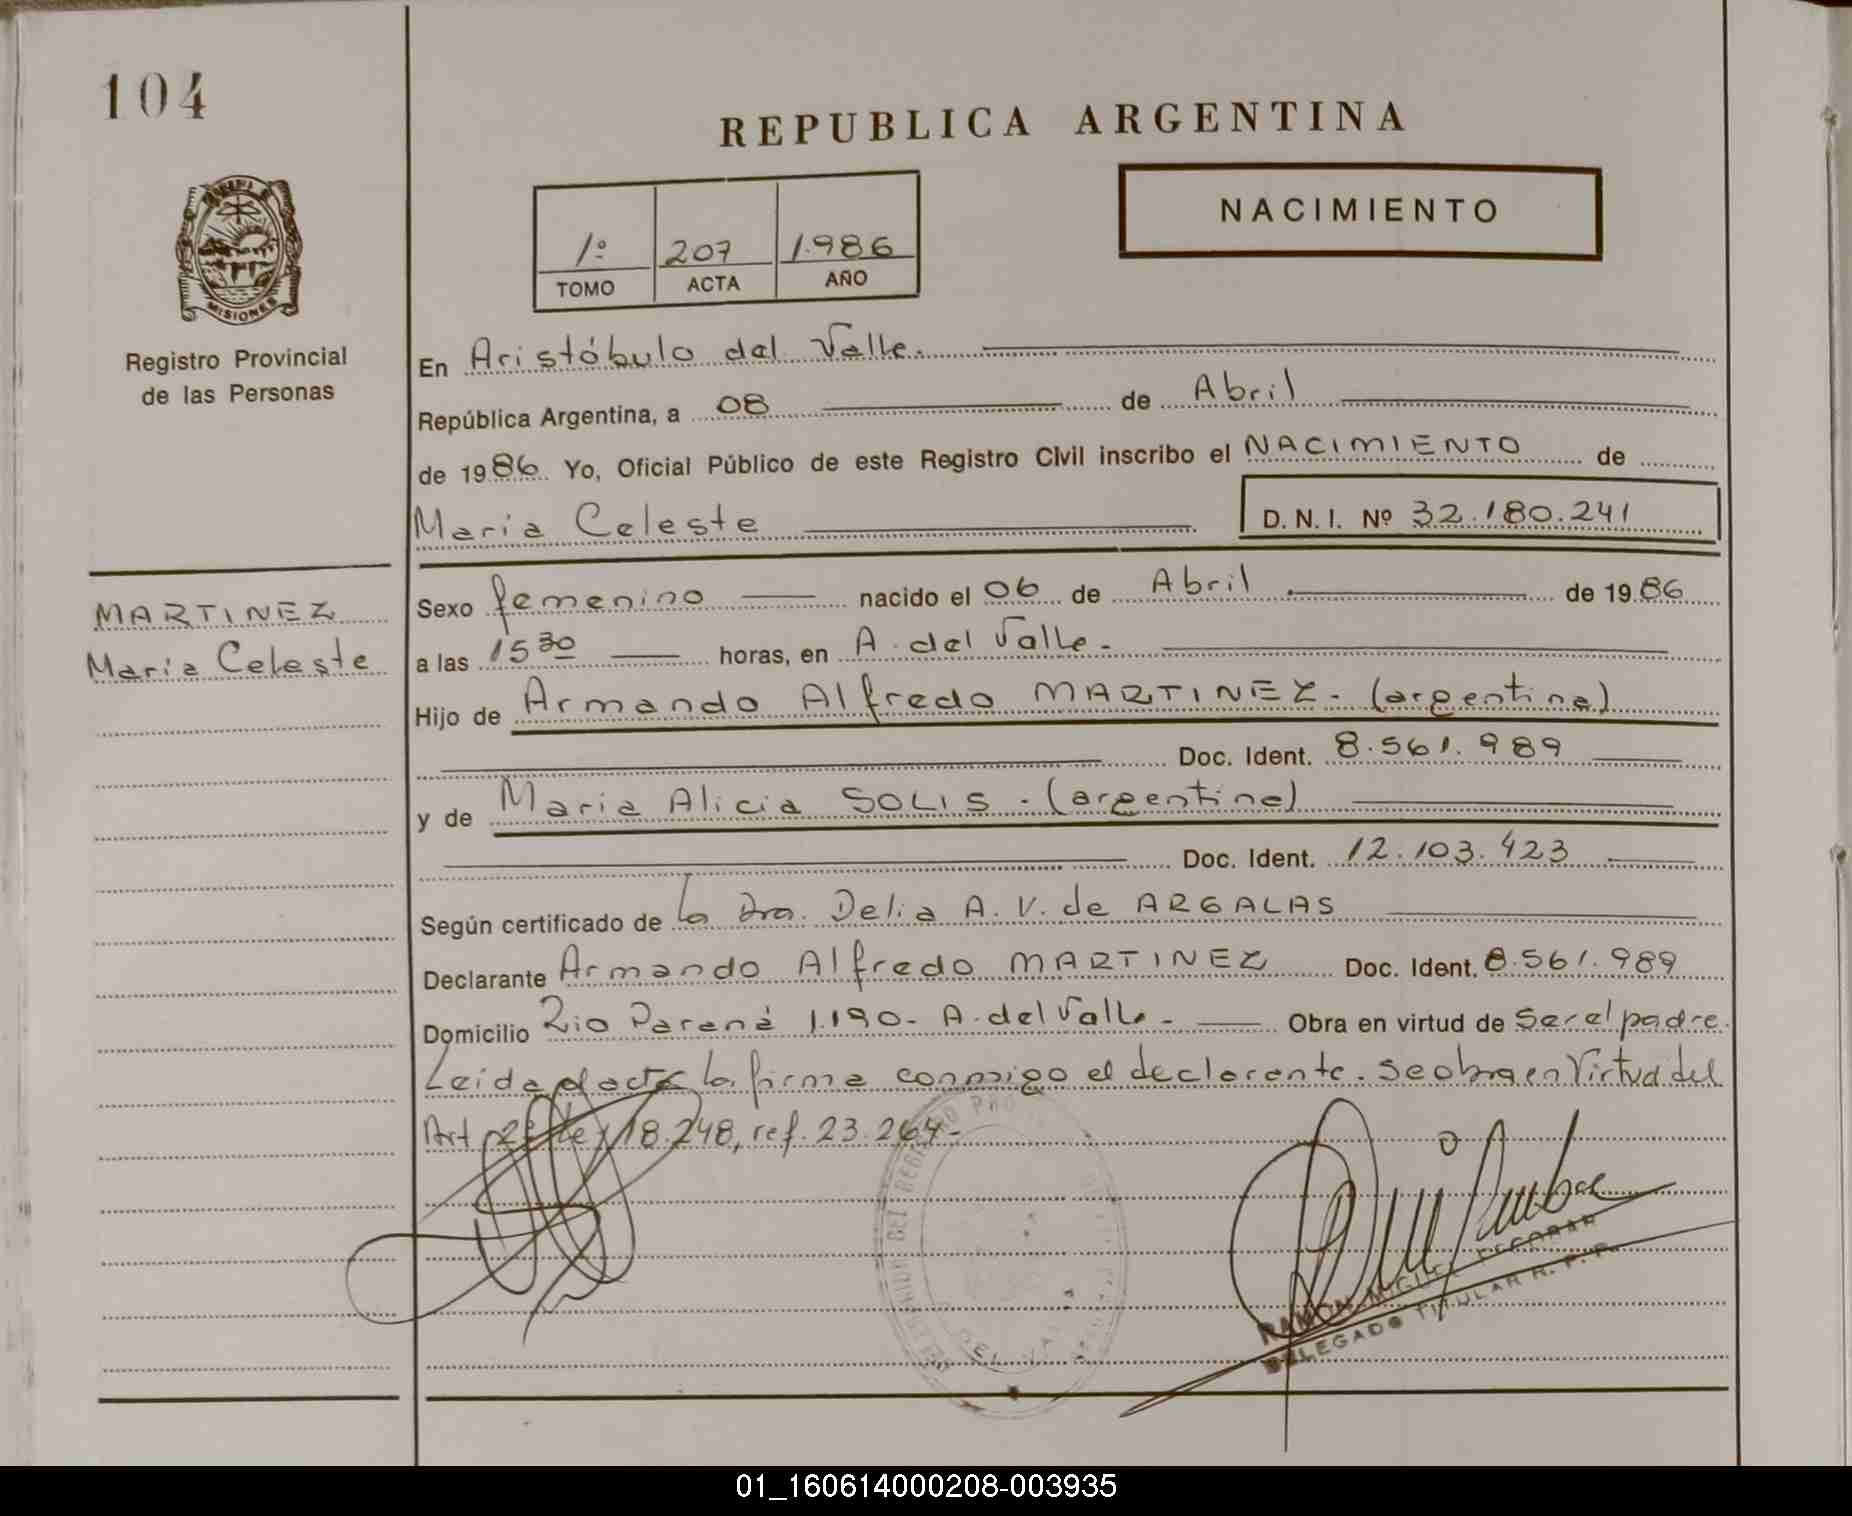 104
REPUBLICA ARGENTINA
NACIMIENTO
1º 207 1.986
TOMO ACTA AÑO
MISIONES
Registro Provincial
de las Personas
En Aristóbulo del Valle.
República Argentina, a 08 de Abril
de 1986 Yo, Oficial Público de este Registro Civil inscribo el NACIMIENTO de
Maria Celeste D.N.I. Nº 32.180.241
MARTINEZ
Maria Celeste
Sexo femenino nacido el 06 de Abril de 1986
a las 15 30 horas, en A. del Valle.-
Hijo de Armando Alfredo MARTINEZ.- (argentina)
Doc. Ident. 8.561.989
y de Maria Alicia SOLIS.- (argentina)
Doc. Ident. 12.103.423
Según certificado de la Dra. Delia A. V. de ARGALAS
Declarante Armando Alfredo MARTINEZ Doc. Ident. 8.561.989
Domicilio Rio Paraná 1.190.- A. del Valle.- Obra en virtud de Ser el padre.
Leida el acta la firma conmigo el declarante. Se obra en Virtud del
Art. 2º Ley 18.248, ref. 23.264.-
DELEGACION DEL REGISTRO
DEL VALLE
RAMON MIGUEL ESCOBAR
DELEGADO TITULAR R. P. P.
01_160614000208-003935